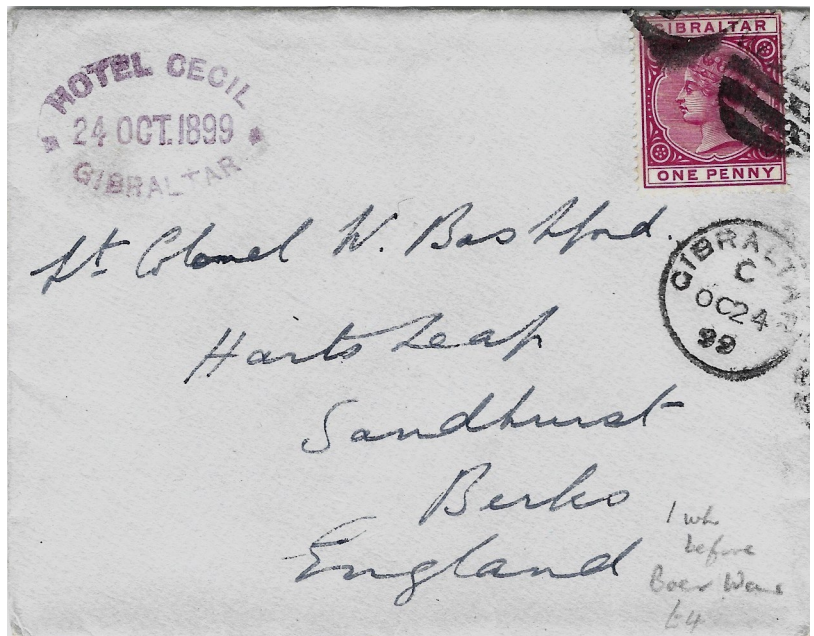 HOTEL CECIL
24 OCT. 1899
GIBRALTAR
GIBRALTAR
ONE PENNY
GIBRALTAR
C
OC 24
99
Lt Colonel W. Bashford.
Harts Leap
Sandhurst
Berks
England
1 wk
before
Boer War
£4